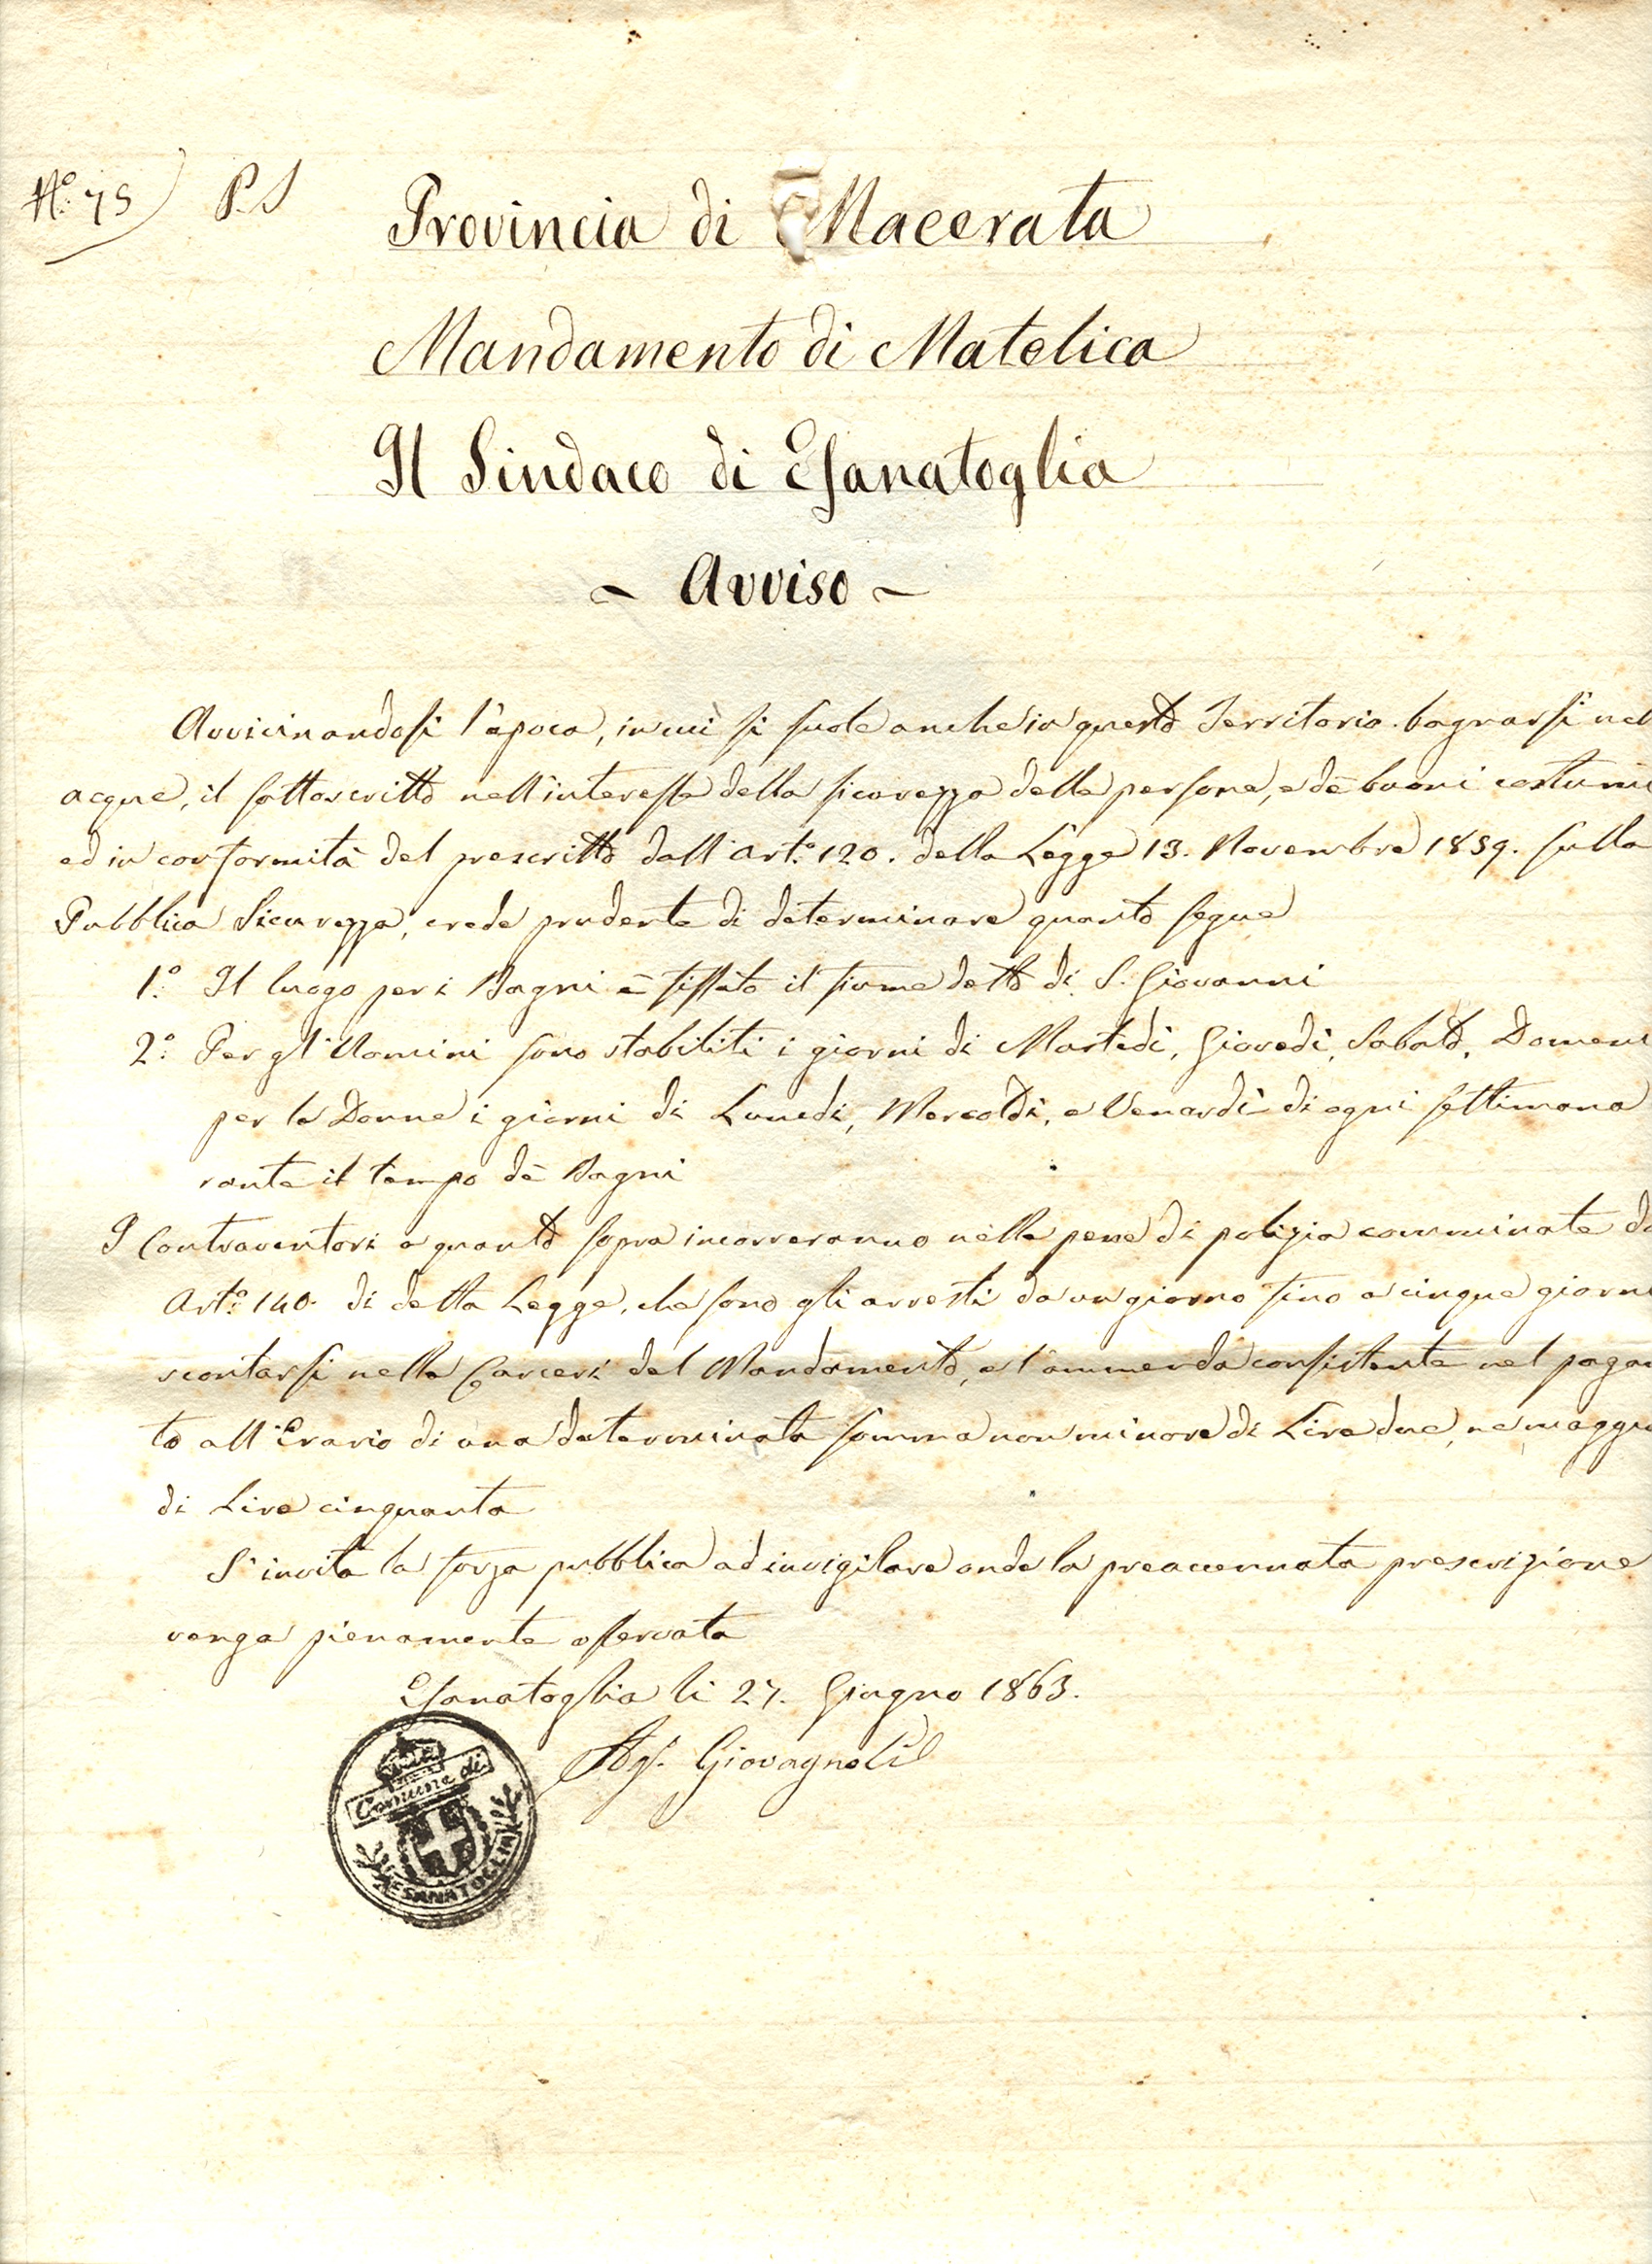 N.° 75 P.S
Provincia di Macerata
Mandamento di Matelica
Il Sindaco di Esanatoglia
- Avviso -
Avvicinandosi l'epoca, in cui si suole anche in questo Territorio bagnarsi nel
acque, il sottoscritto nell'interesse della sicurezza delle persone, e de buoni costumi
ed in conformità del prescritto dall'Art.° 120. della Legge 13. Novembre 1859. sulla
Pubblica Sicurezza, crede prudente di determinare quanto segue
1.° Il luogo per i Bagni è fissato il fiume detto di S. Giovanni
2.° Per gl'Uomini sono stabiliti i giorni di Martedì, Giovedì, Sabato, Domeni
per le Donne i giorni di Lunedì, Mercoldì, e Venerdì di ogni settimana
rante il tempo de Bagni
I Contraventori a quanto sopra incorreranno nelle pene di polizia comminate da
Art.° 140. di detta Legge, che sono gli arresti da un giorno sino a cinque giorni
scontarsi nelle Carceri del Mandamento, e l'ammenda consistente nel pagam
to all'Erario di una determinata somma non minore di Lire due, ne maggio
di Lire cinquanta
S'invita la forza pubblica ad invigilare onde la preaccennata prescrizione
venga pienamente osservata
Esanatoglia li 27. Giugno 1863.
Giovagnoli
Comune di
ESANATOGLIA